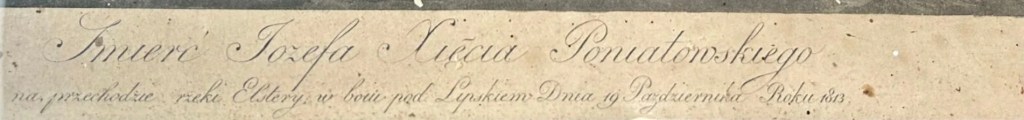 Smierć Jozefa Xięcia Poniatowskiego
na przechodzie rzeki Elstery, w boiu pod Lipskiem Dnia 19 Pazdziernika Roku 1813